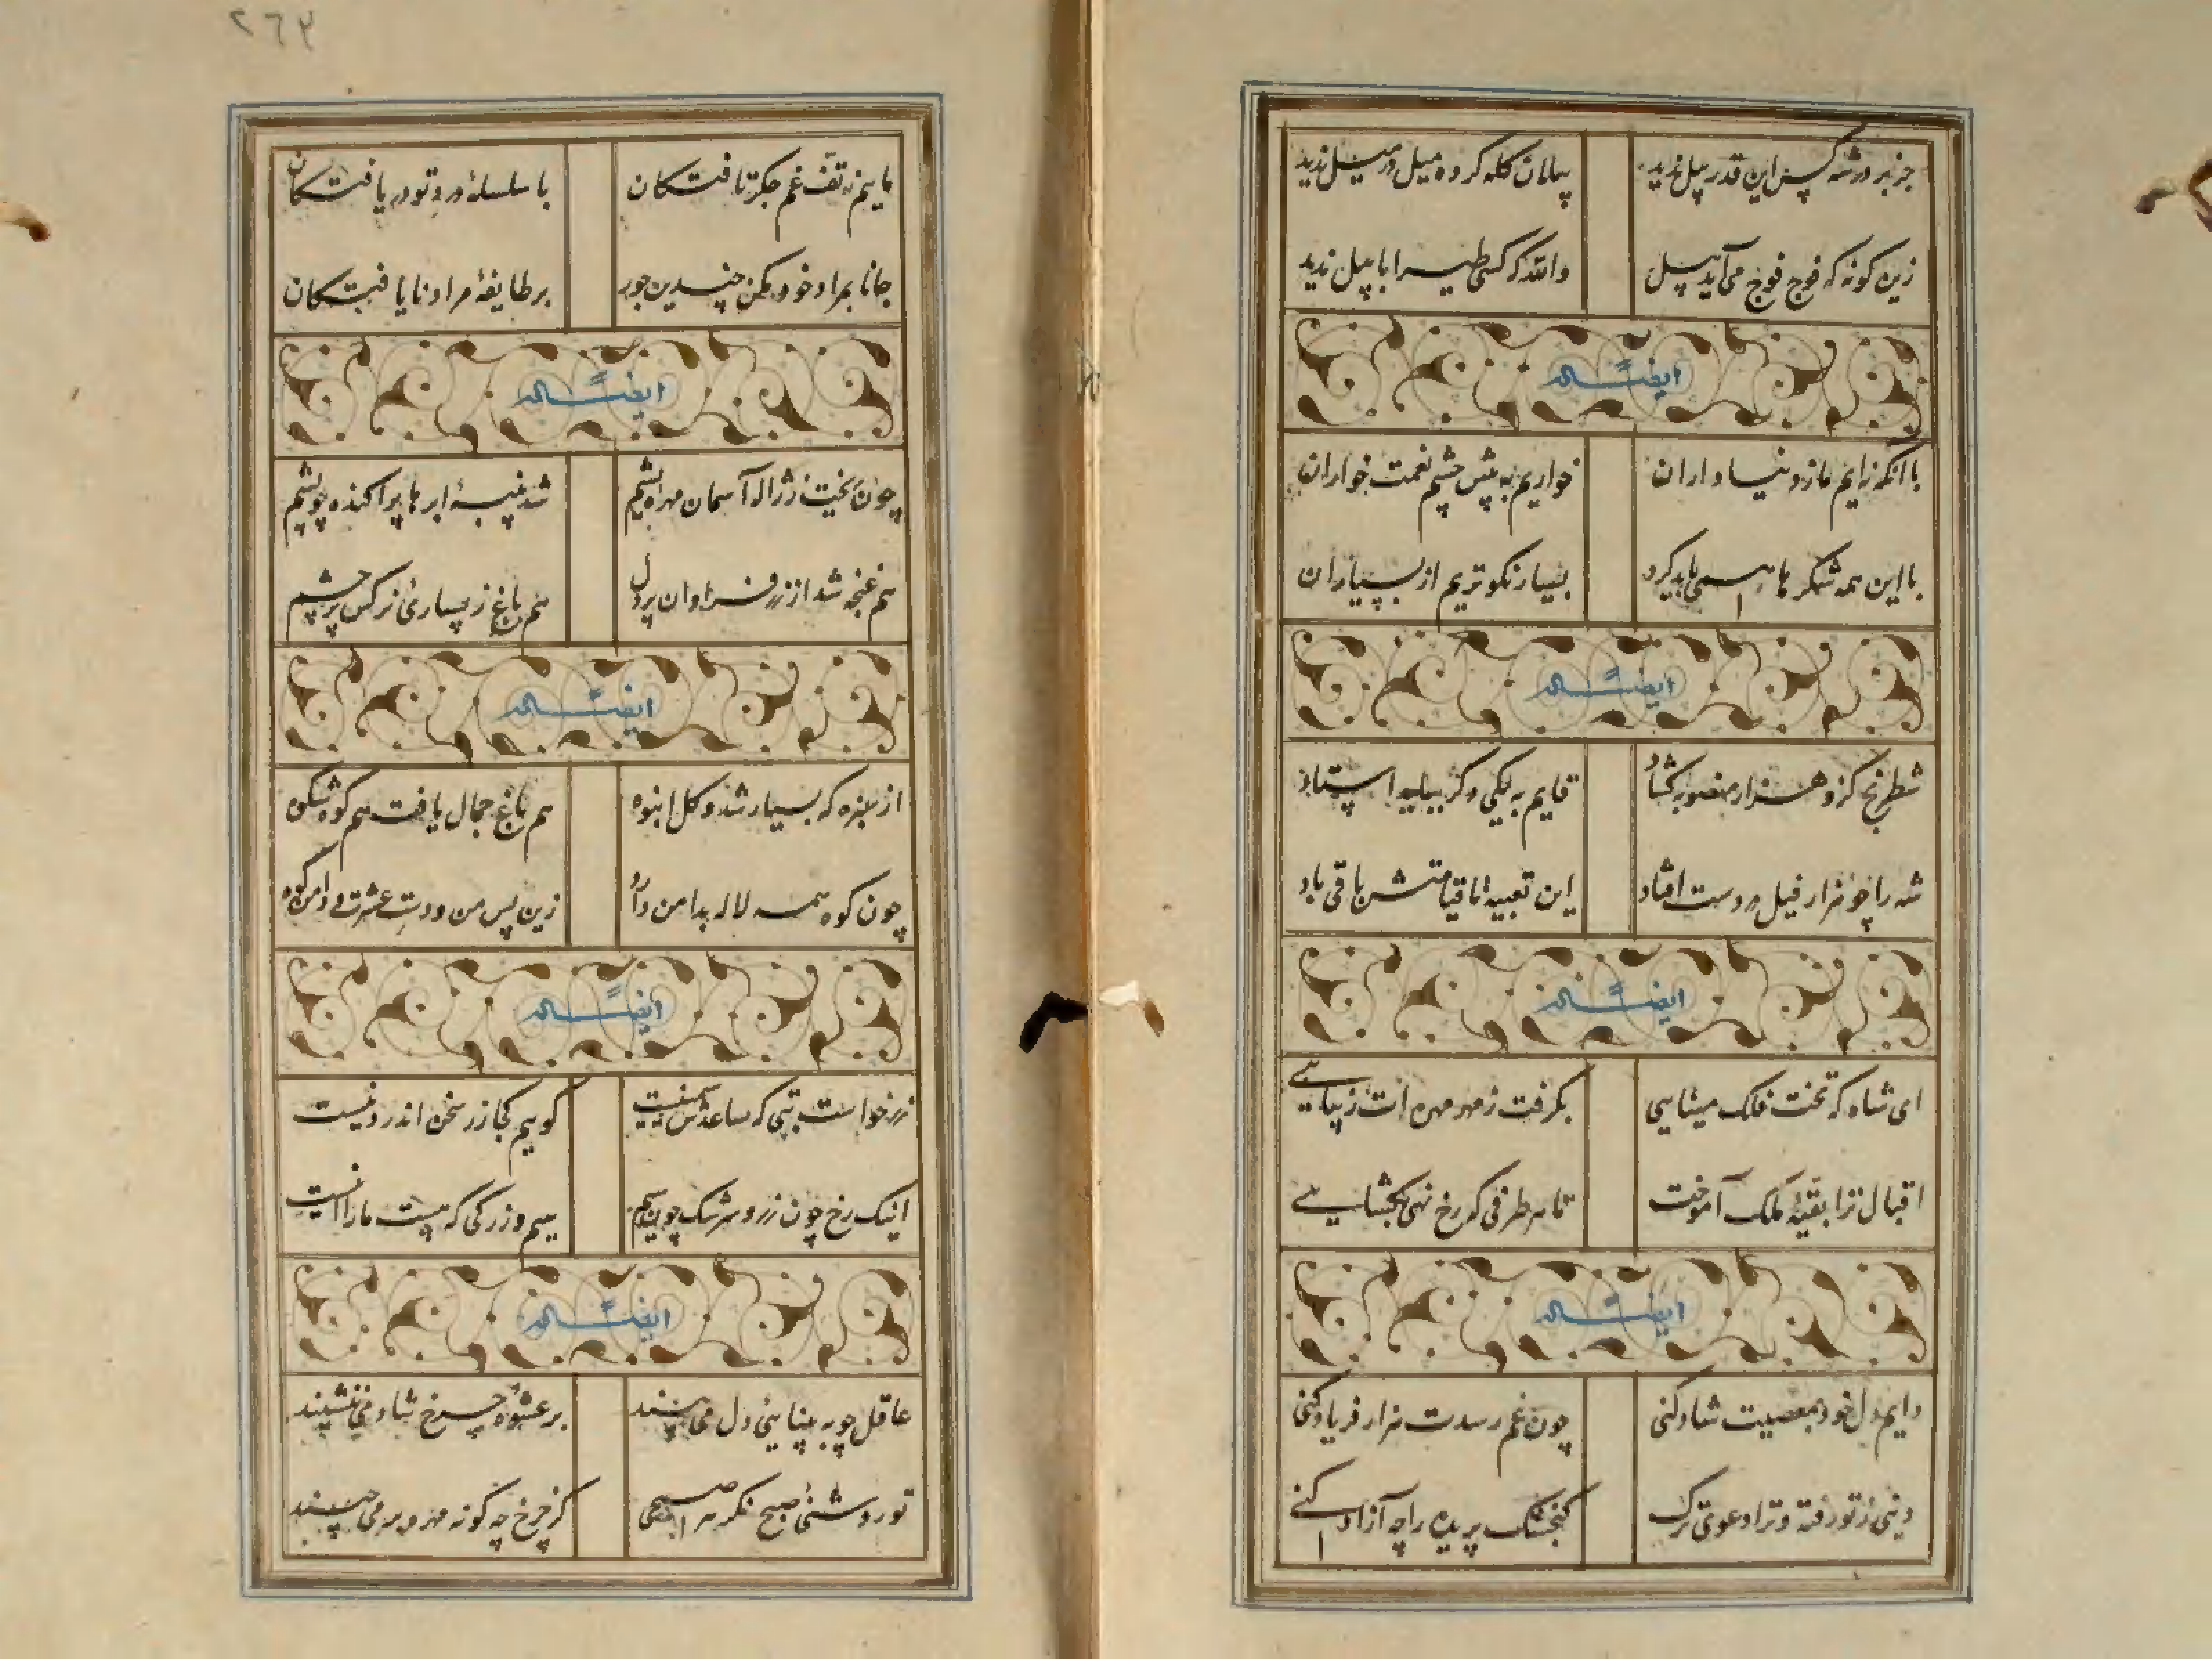 جز بر در شه کس این قدر پیل ندید
پیلان کله کرده میل در میل ندید
زین کونه که فوج فوج می آید پیل
والله که کسی طیرا ابابیل ندید
ایضا له
با آنکه نه ایم ما ز دنیا داران
خواریم به پیش چشم نعمت خواران
با این همه شکر ها همی باید کرد
بسیار نکو تریم از بسیاران
ایضا له
شطرنج کزو هزار منصوبه کشاد
قایم به یکی و کز بیاید استاد
شه را چو هزار فیل در دست افتاد
این تعبیه تا قیامتش باقی باد
ایضا له
ای شاه که تخت فلک مینایی
بکرفت ز مهر مهره ات زیبایی
اقبال ترا بقیهٔ ملک آموخت
تا هر طرفی که رخ نهی بکشایی
ایضا له
دایم دل خود بمعصیت شاد کنی
چون غم رسدت هزار فریاد کنی
دنیی ز تو رفته و ترا دعوی ترک
کنجشک پریده را چه آزاد کنی
٢٦٣
ماییم ز تف غم جکر تافتکان
با سلسلهٔ درد تو دریافتکان
جانا بمراد خود مکن چندین جور
بر طایفهٔ مراد نایافتکان
ایضا له
چون ریخت ز ژاله آسمان مهره یشم
شد پنبهٔ ابر ها پراکنده چو پشم
هم غنچه شد از زر فراوان پر دل
هم باغ ز بسیاری نرکس پر چشم
ایضا له
از سبزه که بسیار شد و کل انبوه
هم باغ جمال یافت هم کوه شکوه
چون کوه همه لاله بدامن دارد
زین پس من و دست عشرت و دامن کوه
ایضا له
زر خواست بتی که ساعدش سیمینست
کویم کجا زر سخن اندر دینست
اینک رخ چون زر و سرشک چو سیم
سیم و زرکی که هست ما را اینست
ایضا له
عاقل چو به بینایی دل می بیند
بر عشوه چرخ شاد می ننشیند
تو روشنی صبح نکر هر صبحی
کز چرخ چه کونه مهر و بر می چیند